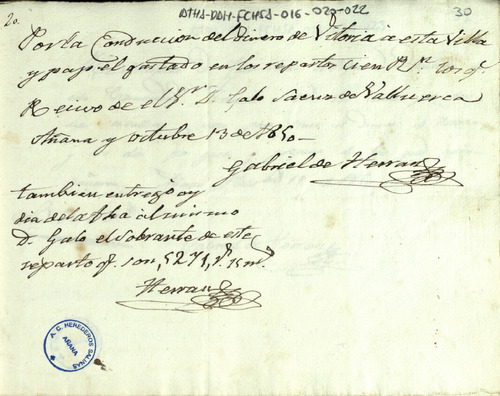 ATHA-DAH-FCHSA-016-020-022
30
20.
Por la Conduccion del Dinero de Vitoria a esta Villa
y pago el gastado en los repartos cien Rs. los q.
Recivo de el Sr. D. Galo Saenz de Valluerca
Añana y Octubre 13 de 1850
Gabriel de Herran
tambien entrego oy
dia de la fha al mismo
D. Galo el Sobrante de este
reparto q. son, 5271, rs. 15 ms.
Herran
A. C. HEREDEROS SALINAS
AÑANA